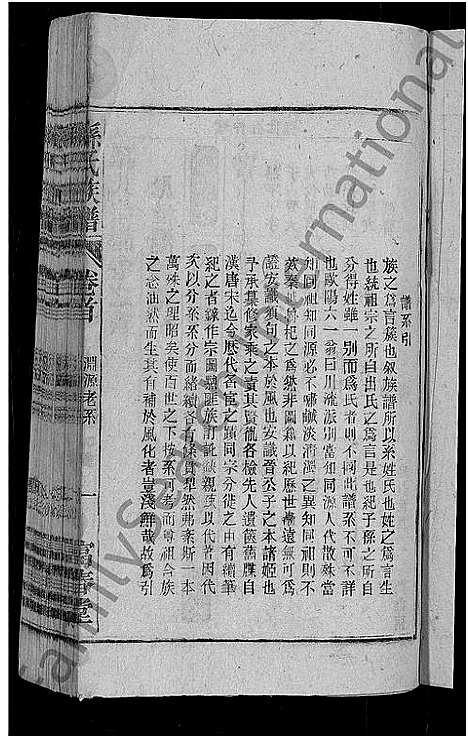 譜系引
族之爲言族也叙族譜所以系姓氏也姓之爲言生
也統祖宗之所自出氏之爲言是也紀子孫之所自
分得姓雖一別而爲氏者則不同此譜系不可不詳
也歐陽六一翁曰川流派別當知同源人代散殊當
知同祖知同源必不嘶鹹淡清濁之異知同祖則不
致秦
杞之爲然非圖籍以紀歷世
遠無可爲
證安識須句之本於風也安識晉公子之本諸姬也
予承集修家乘之責其賢衞各檢先人遺篋舊牒自
漢唐宋迄今歷代各宦之顯同宗分徙之由有續筆
紀之者據作宗圖
匪族訂訛
親疎以代著因代
次以分系系分而緒續各有條貫犁然弗紊斯一本
萬殊之理昭矣使百世之下按系可考而尊祖合族
之念油然而生其有補於風化者豈淺鮮哉故爲引
孫氏族譜
卷首
淵源老系
一
富春堂
familysearch international